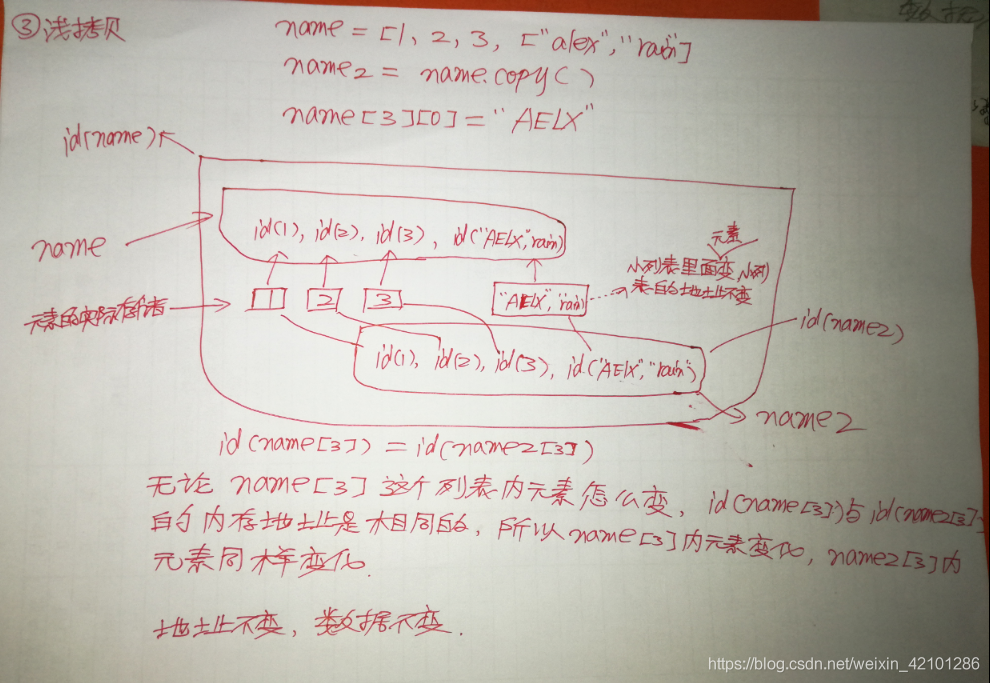 ③浅拷贝
name = [1, 2, 3, ["alex","rain"]
name2 = name.copy()
name[3][0] = "AELX"
id(name)
name
id(1), id(2), id(3), id("AELX","rain)
元素
小列表里面变小列
表的地址不变
1 2 3 "AELX","rain
元素的实际存储者
id(name2)
id(1), id(2), id(3), id("AELX","rain")
name2
id(name[3]) = id(name2[3])
无论 name[3] 这个列表内元素怎么变, id(name[3])与id(name2[3])
的内存地址是相同的, 所以name[3]内元素变化, name2[3]内
元素同样变化.
地址不变, 数据不变.
https://blog.csdn.net/weixin_42101286